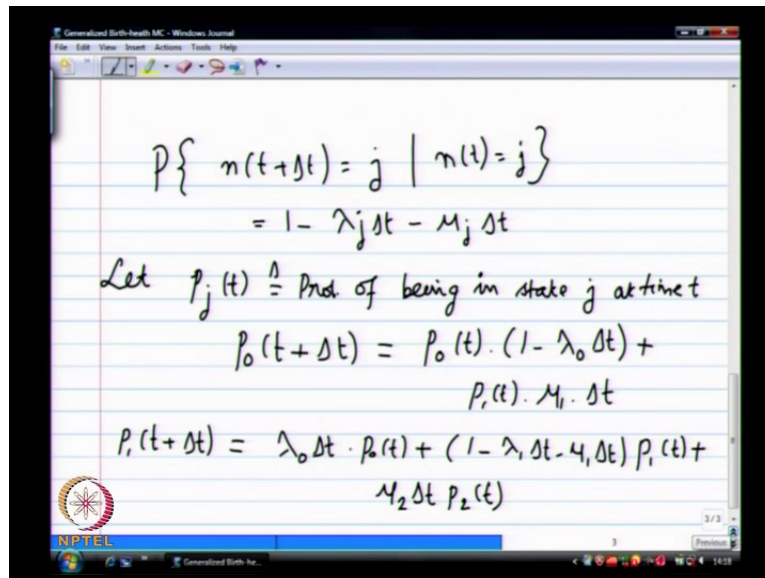 Generalized Birth-heath MC - Windows Journal
File Edit View Insert Actions Tools Help
P{ n(t+Δt) = j | n(t) = j }
= 1 - λj Δt - μj Δt
Let pj(t) ≜ Prob of being in state j at time t
P0(t+Δt) = P0(t). (1 - λ0 Δt) +
P1(t). μ1. Δt
P1(t+Δt) = λ0 Δt · P0(t) + (1 - λ1 Δt - μ1 Δt) P1(t) +
μ2 Δt P2(t)
NPTEL
3/3
3
Previous
Generalized Birth-he...
14:18